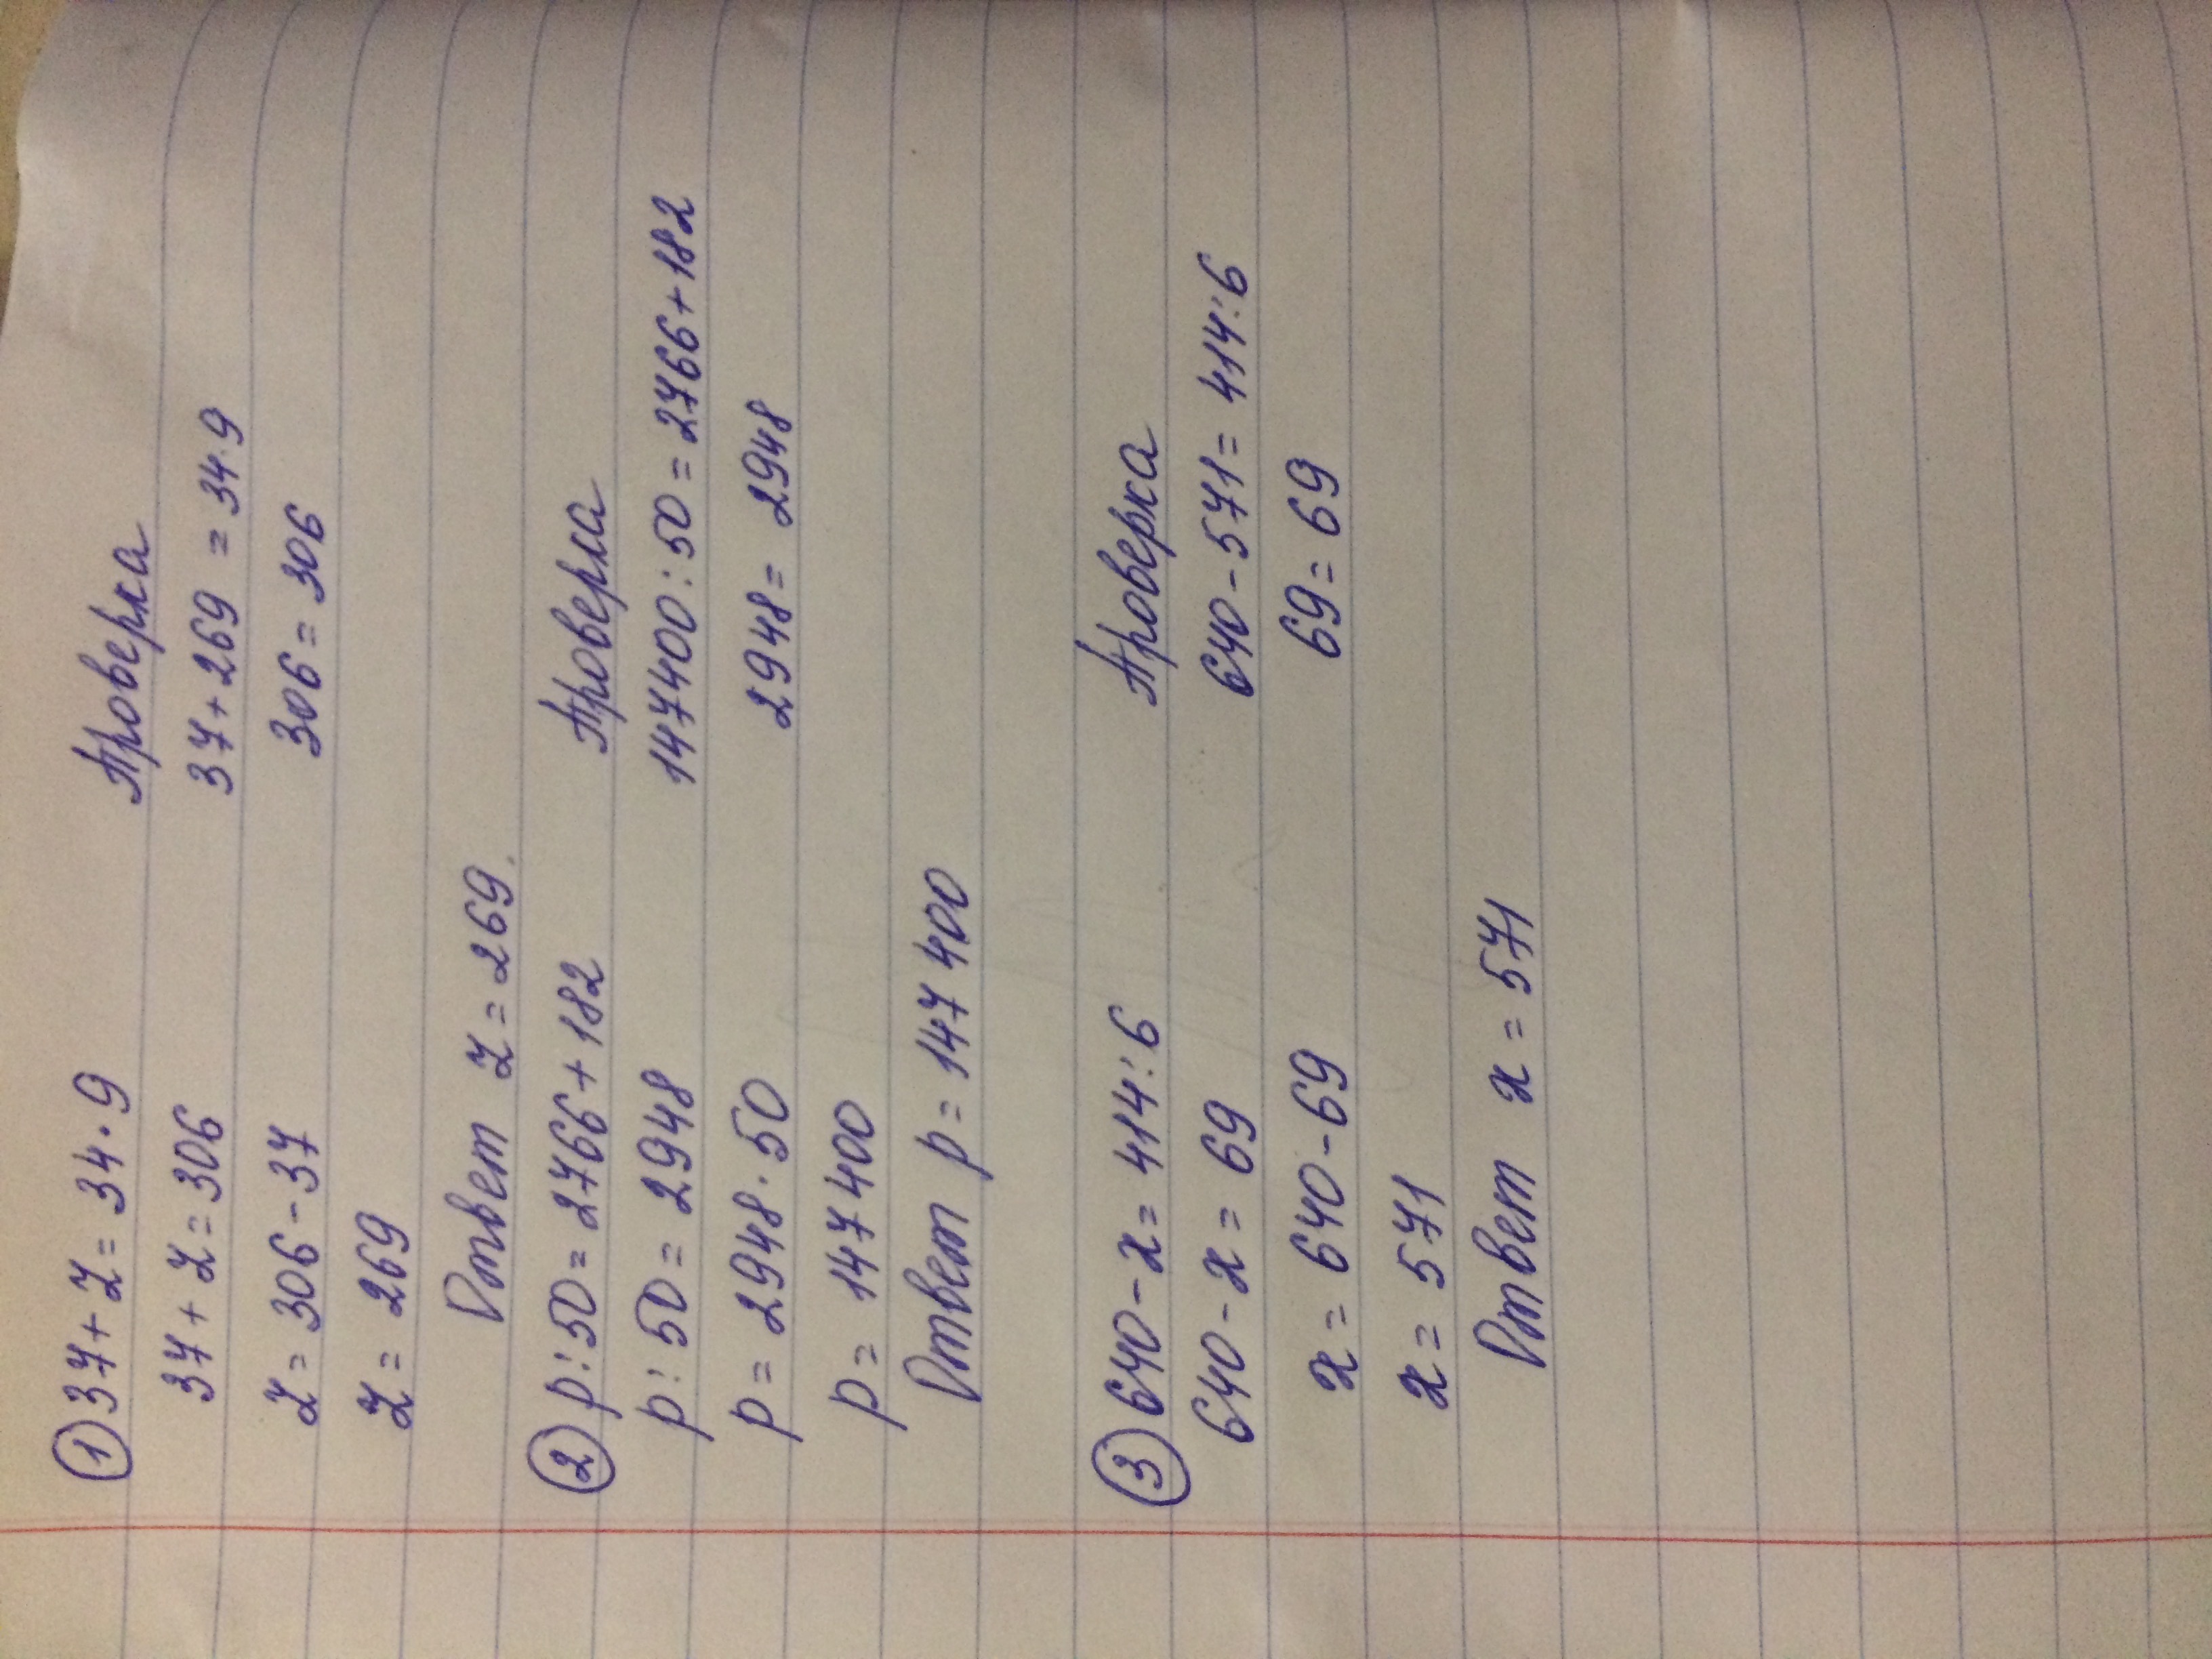 ① 37 + z = 34 · 9 Проверка
37 + z = 306 37 + 269 = 34 · 9
z = 306 - 37 306 = 306
z = 269
Ответ z = 269.
② p : 50 = 2766 + 182 Проверка
p : 50 = 2948 147400 : 50 = 2766 + 182
p = 2948 · 50 2948 = 2948
p = 147 400
Ответ p = 147 400
③ 640 - x = 414 : 6 Проверка
640 - x = 69 640 - 571 = 414 : 6
x = 640 - 69 69 = 69
x = 571
Ответ x = 571